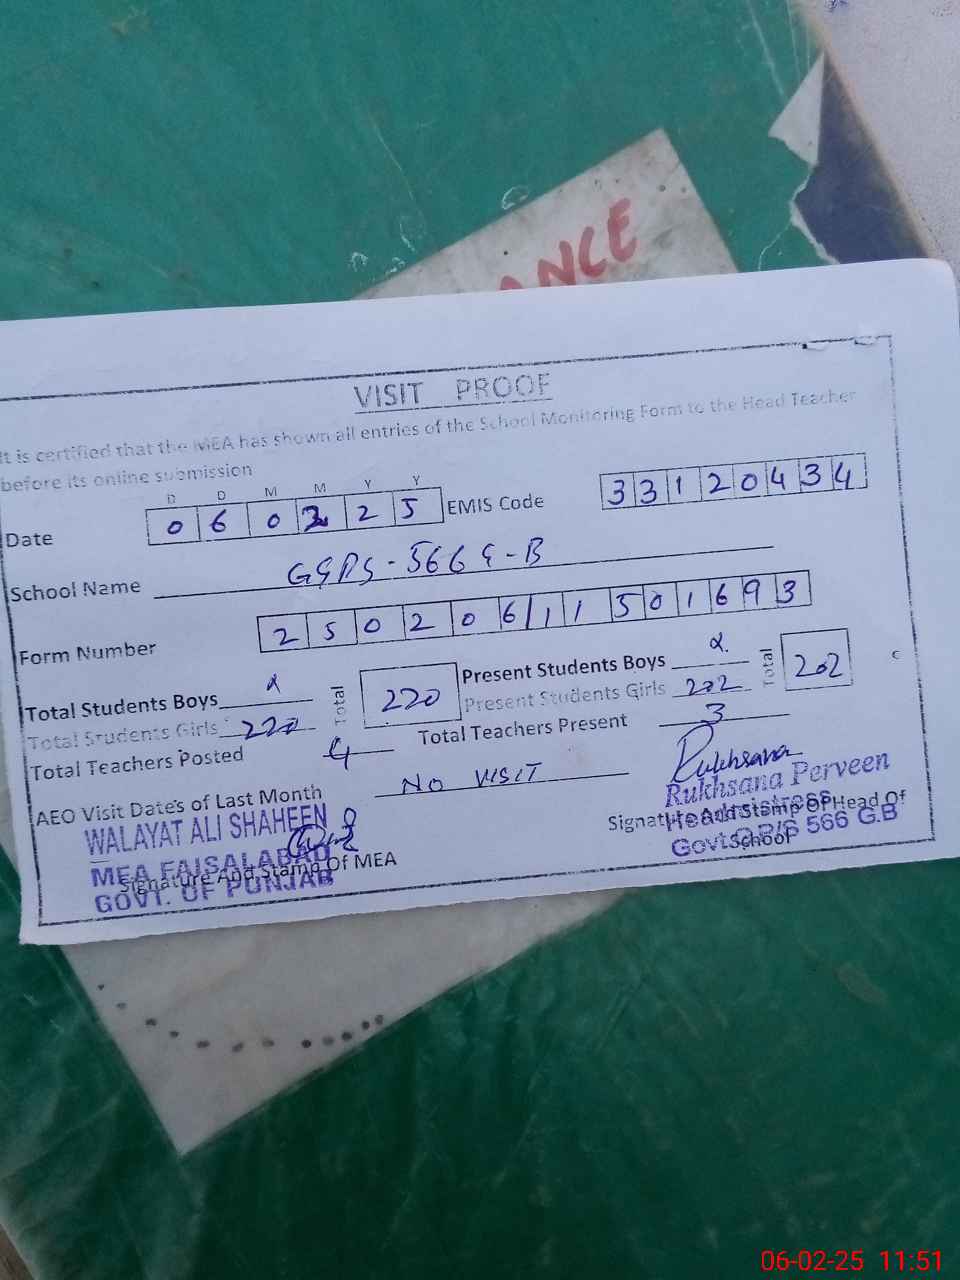 ANCE
VISIT PROOF
It is certified that the MEA has shown all entries of the School Monitoring Form to the Head Teacher
before its online submission
D D M M Y Y
Date 0 6 0 2 2 5 EMIS Code 3 3 1 2 0 4 3 4
School Name GGPS-566 G-B
Form Number 2 5 0 2 0 6 1 1 5 0 1 6 9 3
Total Students Boys Total 220 Present Students Boys Total 202
Total Students Girls 220 Present Students Girls 202
Total Teachers Posted 4 Total Teachers Present 3
AEO Visit Date's of Last Month NO VISIT
Rukhsana
WALAYAT ALI SHAHEEN
MEA FAISALABAD
GOVT. OF PUNJAB
Signature And Stamp Of MEA
Rukhsana Perveen
Headmistress
Govt. P/S 566 G.B
Signature And Stamp Of Head Of
School
06-02-25 11:51